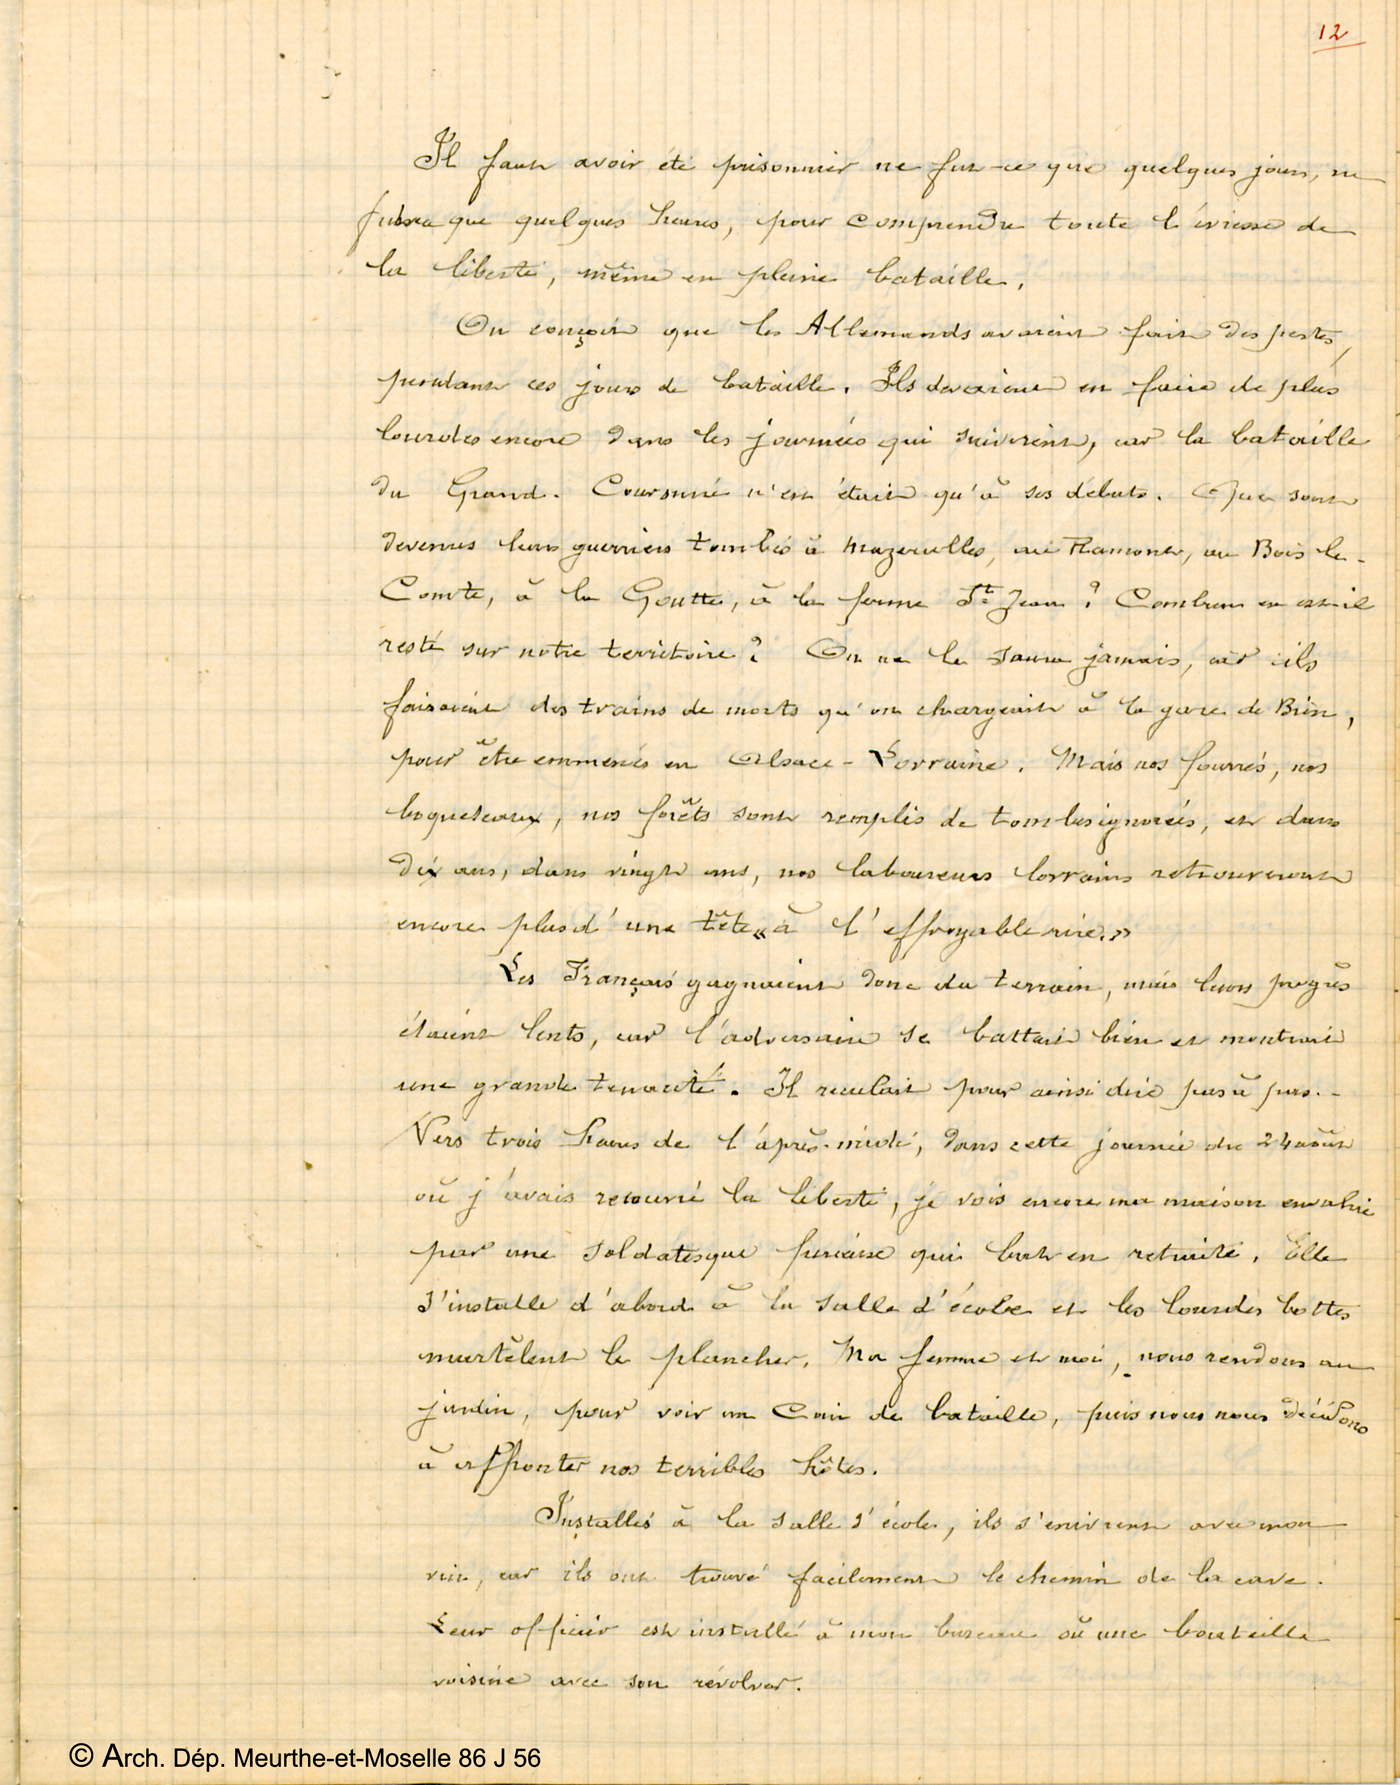 12
Il faut avoir été prisonnier ne fut-ce que quelques jours, ne
fut-ce que quelques heures, pour comprendre toute l'ivresse de
la liberté, même en pleine bataille.
On conçoit que les Allemands avaient fait des pertes,
pendant ces jours de bataille. Ils devaient en faire de plus
lourdes encore dans les journées qui suivirent, car la bataille
du Grand-Couronné n'en était qu'à ses débuts. Que sont
devenus leurs guerriers tombés à Mazerulles, au Ramont, au Bois le-
Comte, à la Goutte, à la ferme St Jean ? Combien en est-il
resté sur notre territoire ? On ne le saura jamais, car ils
faisaient des trains de morts qu'on chargeait à la gare de
pour être emmenés en Alsace-Lorraine. Mais nos fourrés, nos
boqueteaux, nos forêts sont remplis de tombes ignorées, et dans
dix ans, dans vingt ans, nos laboureurs lorrains retrouveront
encore plus d'une tête « à l'effroyable rire. »
Les Français gagnaient donc du terrain, mais leurs progrès
étaient lents, car l'adversaire se battait bien et montrait
une grande tenacité. Il reculait pour ainsi dire pas à pas. -
Vers trois heures de l'après-midi, dans cette journée du 24 août
où j'avais recouvré la liberté, je vois encore ma maison envahie
par une soldatesque furieuse qui bat en retraite. Elle
s'installe d'abord à la salle d'école et les lourdes bottes
martèlent le plancher. Ma femme et moi, nous rendons au
jardin, pour voir un coin de bataille, puis nous nous décidons
à affronter nos terribles hôtes.
Installés à la salle d'école, ils s'enivrent avec mon
vin, car ils ont trouvé facilement le chemin de la cave.
Leur officier est installé à mon bureau où une bouteille
voisine avec son révolver.
© Arch. Dép. Meurthe-et-Moselle 86 J 56